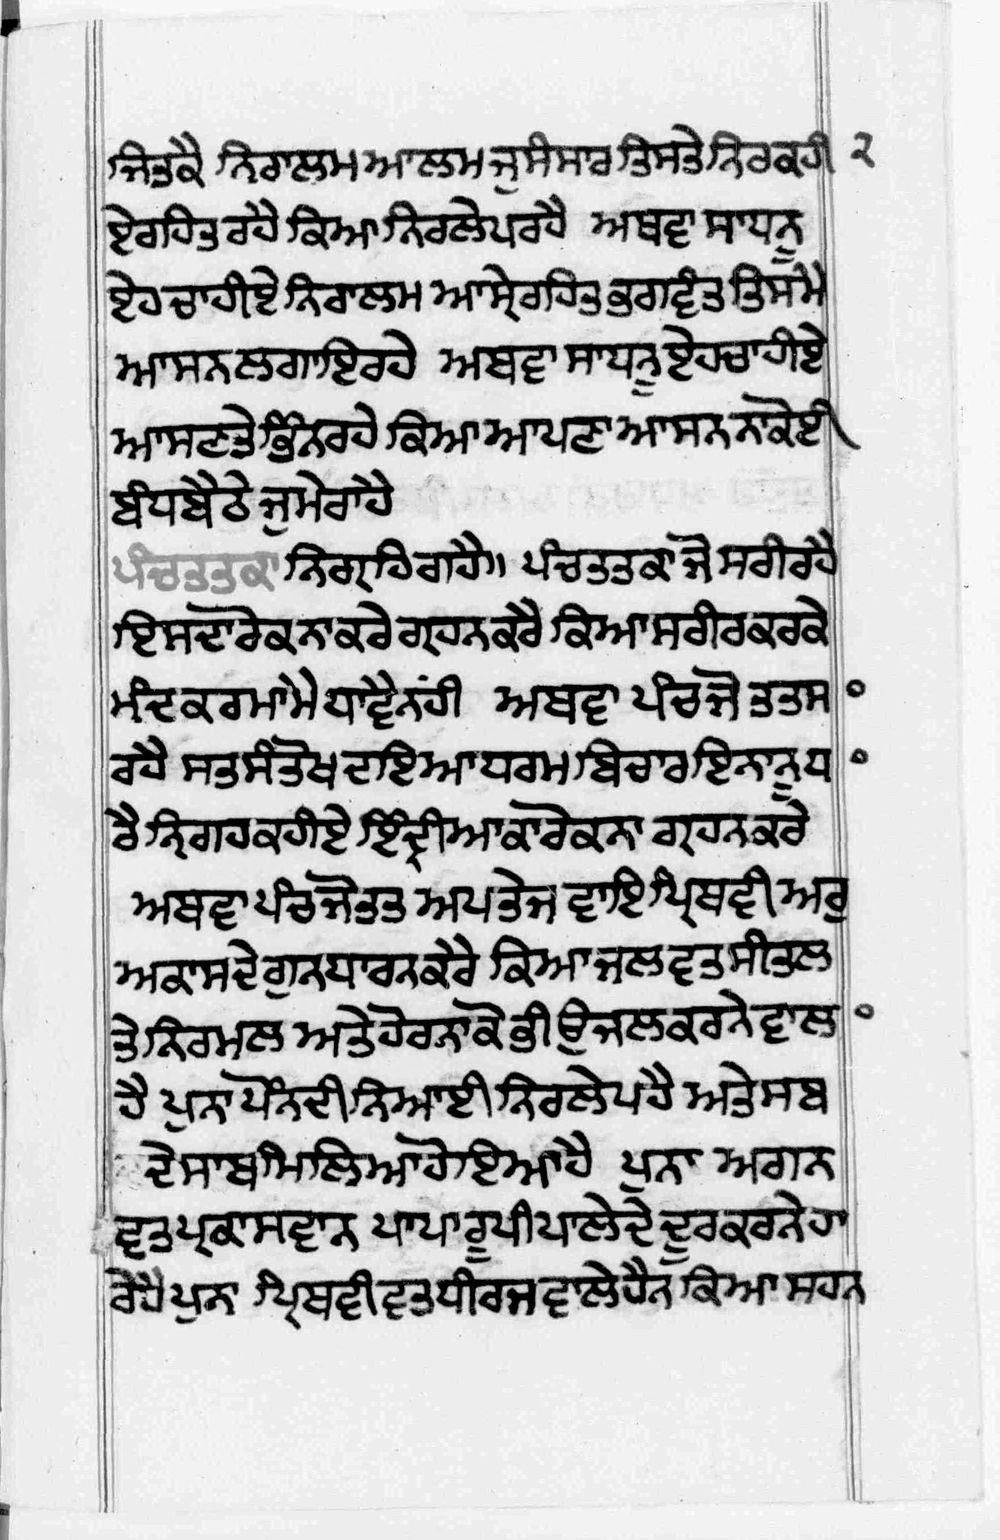 ਜਿਤਕੈ ਨਿਰਾਲਮ ਆਲਮ ਜੁ ਸੰਸਾਰ ਤਿਸਤੇ ਨਿਰਕਹੀ ੨
ਏ ਰਹਿਤ ਰਹੈ ਕਿਆ ਨਿਰਲੇਪ ਰਹੈ ਅਥਵਾ ਸਾਧਨੂ
ਏਹ ਚਾਹੀਏ ਨਿਰਾਲਮ ਆਸ੍ਰੇ ਰਹਿਤ ਭਗਵੰਤ ਤਿਸਮੈ
ਆਸਨ ਲਗਾਇ ਰਹੇ ਅਥਵਾ ਸਾਧਨੂ ਏਹ ਚਾਹੀਏ
ਆਸਣਤੇ ਭਿੰਨ ਰਹੇ ਕਿਆ ਆਪਣਾ ਆਸਨ ਨਾ ਕੋਈ
ਬੰਧ ਬੈਠੇ ਜੁ ਮੇਰਾ ਹੈ
ਪੰਚ ਤਤ ਕਾ ਨਿਗ੍ਰਹਿ ਗਹੈ॥ ਪੰਚ ਤਤ ਕਾ ਜੋ ਸਰੀਰ ਹੈ
ਇਸਦਾ ਰੋਕਨਾ ਕਰੇ ਗ੍ਰਹਨ ਕਰੈ ਕਿਆ ਸਰੀਰ ਕਰਕੇ
ਮੰਦ ਕਰਮਾ ਮੈ ਧਾਵੈ ਨਹੀ ਅਥਵਾ ਪੰਚ ਜੋ ਤਤ ਸ
ਰਹੈ ਸਤ ਸੰਤੋਖ ਦਇਆ ਧਰਮ ਬਿਚਾਰ ਇਨਾਨੂ ਧ
ਰੈ ਨਿਗ੍ਰਹ ਕਹੀਏ ਇੰਦ੍ਰੀਆ ਕਾ ਰੋਕਨਾ ਗ੍ਰਹਨ ਕਰੇ
ਅਥਵਾ ਪੰਚ ਜੋ ਤਤ ਅਪ ਤੇਜ ਵਾਇ ਪ੍ਰਿਥਵੀ ਅਰੁ
ਅਕਾਸ ਦੇ ਗੁਨ ਧਾਰਨ ਕਰੈ ਕਿਆ ਜਲ ਵਤ ਸੀਤਲ
ਤੇ ਨਿਰਮਲ ਅਤੇ ਹੋਰਨਾ ਕੋ ਭੀ ਉਜਲ ਕਰਨੇ ਵਾਲ
ਹੈ ਪੁਨਾ ਪੌਨ ਦੀ ਨਿਆਈ ਨਿਰਲੇਪ ਹੈ ਅਤੇ ਸਬ
ਦੇ ਸਾਥ ਮਿਲਿਆ ਹੋਇਆ ਹੈ ਪੁਨਾ ਅਗਨ
ਵਤ ਪ੍ਰਕਾਸਵਾਨ ਪਾਪਾ ਰੂਪੀ ਪਾਲੇ ਦੇ ਦੂਰ ਕਰਨੇ ਹਾ
ਰੇ ਹੈ ਪੁਨਾ ਪ੍ਰਿਥਵੀ ਵਤ ਧੀਰਜ ਵਾਲੇ ਹੈਨ ਕਿਆ ਸਹਨ